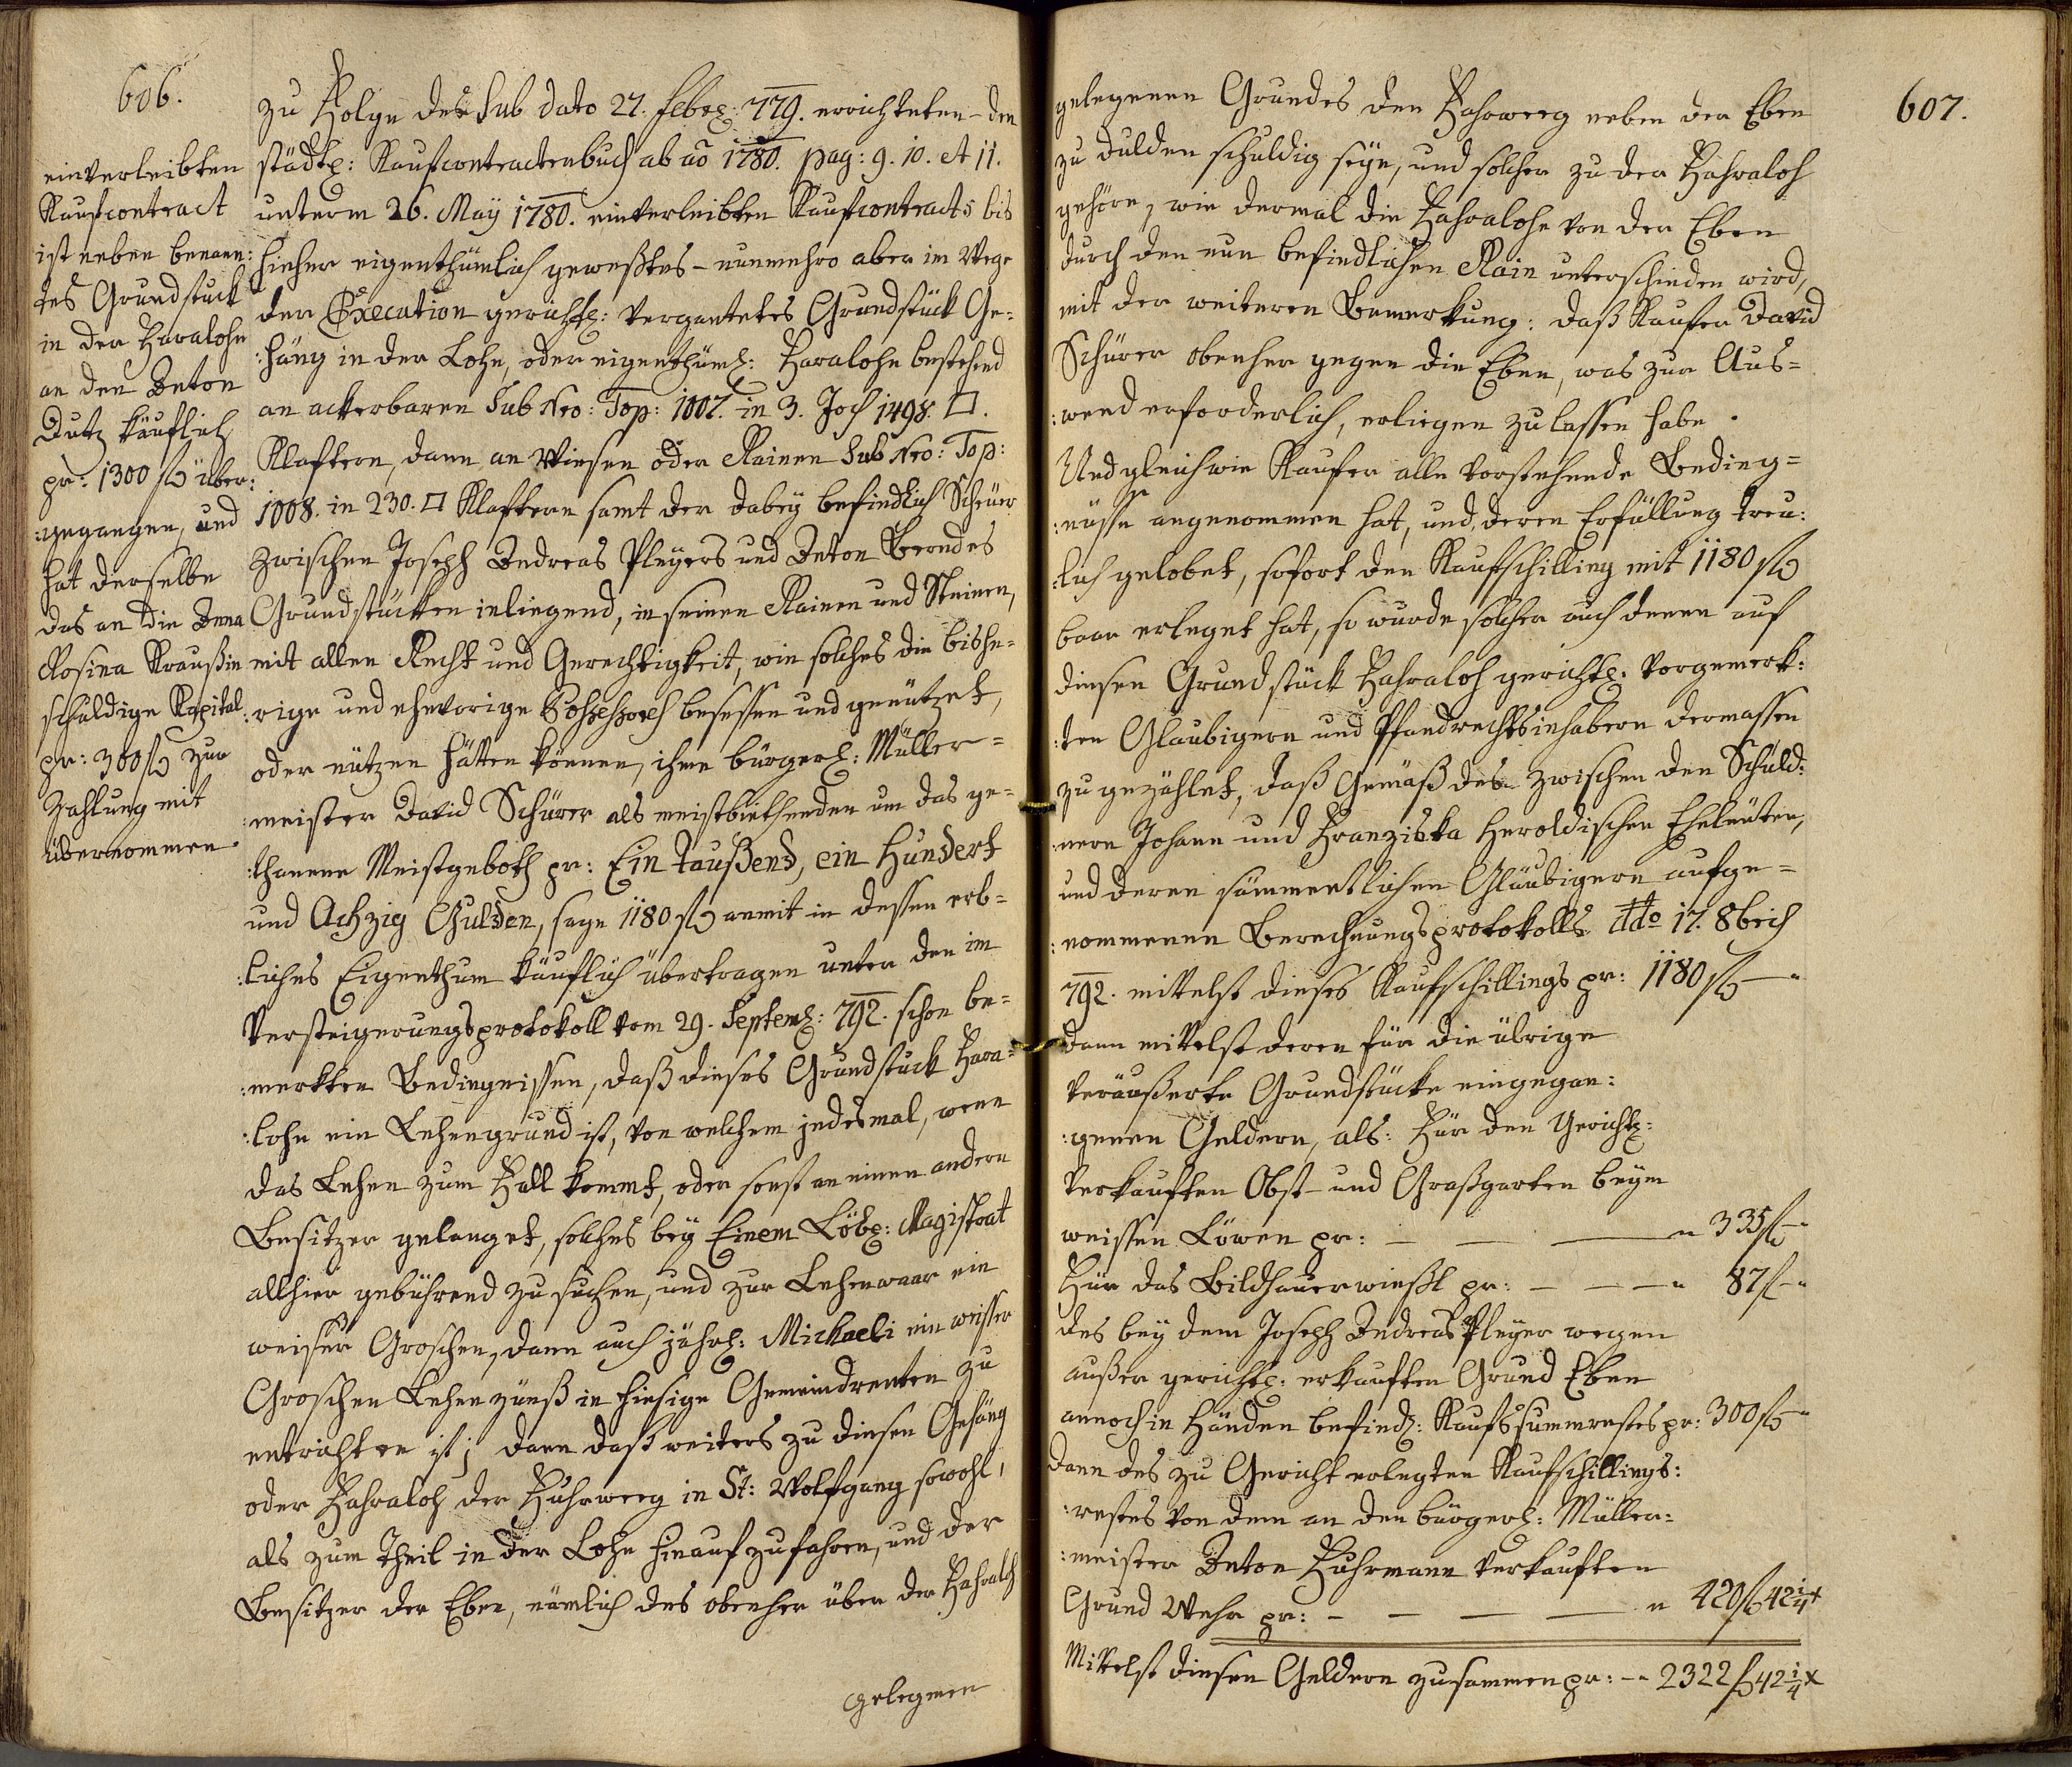 606.
einverleibten
Kaufcontract
ist neben benann:
tes Grundstuck
in der Haralohe
an den Anton
Dutz käuflich
pr: 1300 fl über:
:gegangen, und
hat derselbe
das an die Anna
Rosina Kraußin
schuldige Kapital
pr: 300 fl zur
Zahlung mit
übernommen.
zu Folge des sub dato 27. Febr: 779. errichteten – den
städt: Kaufcontractenbuch ab aō 1780. pag: 9. 10. et 11.
unterm 26. May 1780. einverleibten Kaufcontracts bis
hieher eigenthümlich geweßtes – nunmehro aber im Wege
der Execution gerichtl: vergantetes Grundstück Ge-
:häng in der Lohe, oder eigenthüml: Haralohe bestehend
an ackerbaren sub Nro: Top: 1007. in 3. Joch 1498. □.
Klaftern, dann an Wiesen oder Rainen sub Nro: Top:
1008. in 230. □ Klaftern samt der dabey befindlich Scheüer
zwischen Joseph Andreas Pleyers und Anton Berndes
Grundstücken inliegend, in seinen Rainen und Steinen,
mit allen Recht und Gerechtigkeit, wie solches die bishe-
:rige und ehevorige Possessores besessen und genützet,
oder nützen hätten können, ihme bürgerl: Müller-
:meister David Schürer als meistbiethenden um das ge-
:thanene Meistgeboth pr: Ein taußend, ein Hundert
und Achzig Gulden, sage 1180 fl anmit in dessen erb-
:liches Eigenthum käuflich übertragen unter den im
Versteigerungsprotokoll vom 29. Septemb: 792. schon be-
:merkten Bedingnissen, daß dieses Grundstuck Hara-
:lohe ein Lehengrund ist, von welchem jedesmal, wenn
das Lehen zum Fall kommt, oder sonst an einen andern
Besitzer gelanget, solches bey Einem Löbl: Magistrat
allhier gebührend zu suchen, und zur Lehenwaar ein
weiser Groschen, dann auch jährl: Michaeli ein weisser
Groschen Lehenzünß in hiesige Gemeindrenten zu
entrichten ist; dann daß weiters zu diesen Gehäng
oder Hahraloh der Fuhrweeg in St: Wolfgang sowohl,
als zum Theil in der Lohe hinauf zufahren, und der
Besitzer der Eben, nämlich des obenher über der Hahraloh
gelegenen
607.
gelegenen Grundes den Fahrweeg neben der Eben
zu dulden schuldig seye, und solcher zu der Hahraloh
gehöre, wie dermal die Hahralohe von der Eben
durch den nun befindlichen Rain unterschieden wird,
mit der weiteren Bemerkung: daß Kaufer David
Schürer obenher gegen die Eben, was zur Aus-
:wend erforderlich, erliegen zu lassen habe.
Und gleichwie Kaufer alle vorstehende Beding-
:nüsse angenommen hat, und deren Erfüllung treu:
:lich gelobet, sofort den Kaufschilling mit 1180 fl
baar erleget hat, so wurde solcher auch denen auf
diesen Grundstück Hahraloh gerichtl: vorgemerk:
:ten Glaubigern und Pfandrechtsinhabern dermassen
zu gezählet, daß Gemäß des zwischen den Schuld:
:nern Johann und Franziska Heroldischen Eheleuten,
und deren sämmentlichen Gläubigern aufge-
:nommenen Berechnungsprotokolls ddto 17. 8bris
792. mittelst dieses Kaufschillings pr: 1180 fl –"
dann mittelst deren für die übrige
veräußerte Grundstücke eingegan:
:genen Geldern, als: Für den Gerichtl:
verkauften Obst- und Graßgarten beym
weissen Löwen pr: – – – " 335 fl –"
Für das Bildhauerwießl pr: – – – " 87 fl –"
des bey dem Joseph Andreas Pleyer wegen
außer gerichtl: erkauften Grund Eben
annoch in Händen befindl: Kaufssummrestes pr: 300 fl –"
dann des zu Gericht erlegten Kaufschillings:
:restes von dem an den bürgerl: Müller-
:meister Anton Fuhrmann verkauften
Grund Wehr pr: – – – – " 420 fl 42 1/4 x
Mittelst diesen Geldern zusammen pr: –" 2322 fl 42 1/4 x